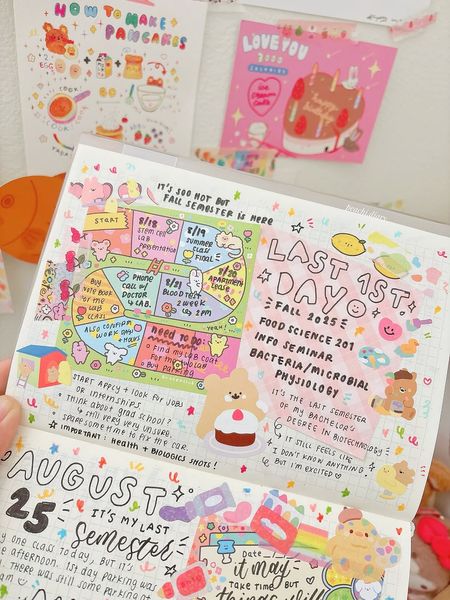 HOW TO MAKE
PANCAKES
EGG
COOK!
LOVE YOU
IT'S SOO HOT BUT
FALL SEMESTER IS HERE
START
8/18
STEM CELL
LAB
PRESENTATION
8/19
SUMMER
CLASS
FINAL
8/20
APARTMENT
BUY
NOTEBOOK
FOR THE
LAB
CLASS
PHONE
CALL W/
DOCTOR
& LAB.
8/21
BLOOD TEST
2 WEEK
2PM
YEAH!
ALSO CONFIRM
WORK DAY
+ HOURS
NEED TO DO:
Find my LAB COAT
FOR the mic LAB
+ BUY PARKING
START APPLY + LOOK FOR JOBS
OR INTERNSHIPS
THINK ABOUT GRAD SCHOOL?
↳ STILL VERY VERY UNSURE
SPARE SOME TIME TO FIX THE CAR.
IMPORTANT: HEALTH + BIOLOGICS SHOTS!
LAST 1ST
DAY
FALL 2025
FOOD SCIENCE 201
INFO SEMINAR
BACTERIA/MICROBIAL
PHYSIOLOGY
IT'S THE LAST SEMESTER
OF MY BACHELOR'S
DEGREE IN BIOTECHNOLOGY
IT STILL FEELS LIKE
I DON'T KNOW ANYTHING.
BUT I'M EXCITED ♡
AUGUST
25
IT'S MY LAST
Semester
ONE CLASS TODAY, BUT IT'S
AFTERNOON. 1ST DAY PARKING WAS
THERE WAS STILL SOME PARKING
Date
it may
TAKE TIME, BUT
things will